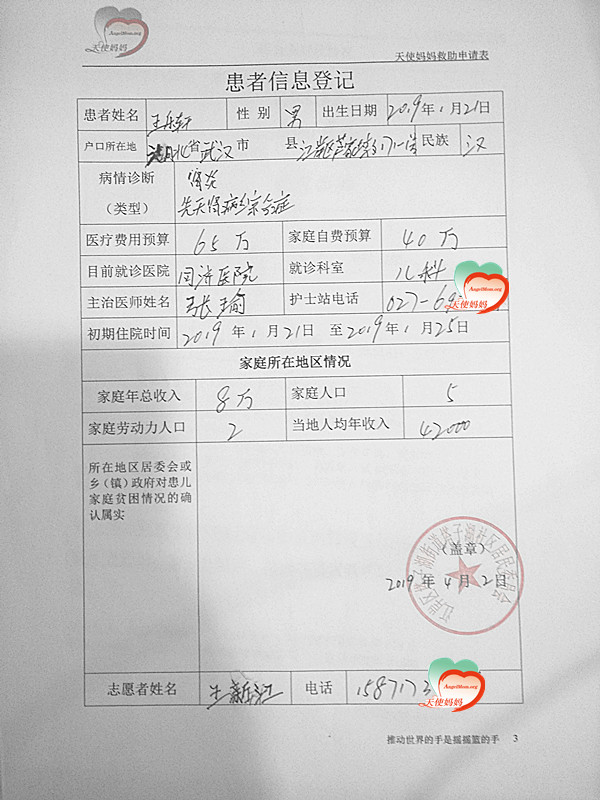 AngelMom.org
天使妈妈
天使妈妈救助申请表
患者信息登记
患者姓名 性别 男 出生日期 2019年1月21日
户口所在地 湖北省武汉市 县 民族 汉
病情诊断
(类型)
肾炎
先天肾病综合症
医疗费用预算 65万 家庭自费预算 40万
目前就诊医院 同济医院 就诊科室 儿科
主治医师姓名 张瑜 护士站电话 027-69
AngelMom.org
天使妈妈
初期住院时间 2019年1月21日 至2019年1月25日
家庭所在地区情况
家庭年总收入 8万 家庭人口 5
家庭劳动力人口 2 当地人均年收入 42000
所在地区居委会或
乡(镇)政府对患儿
家庭贫困情况的确
认属实
(盖章)
2019年4月2日
江岸区塔子湖街道塔子湖社区居民委员会
志愿者姓名 王新江 电话 1587173
AngelMom.org
天使妈妈
推动世界的手是摇摇篮的手 3